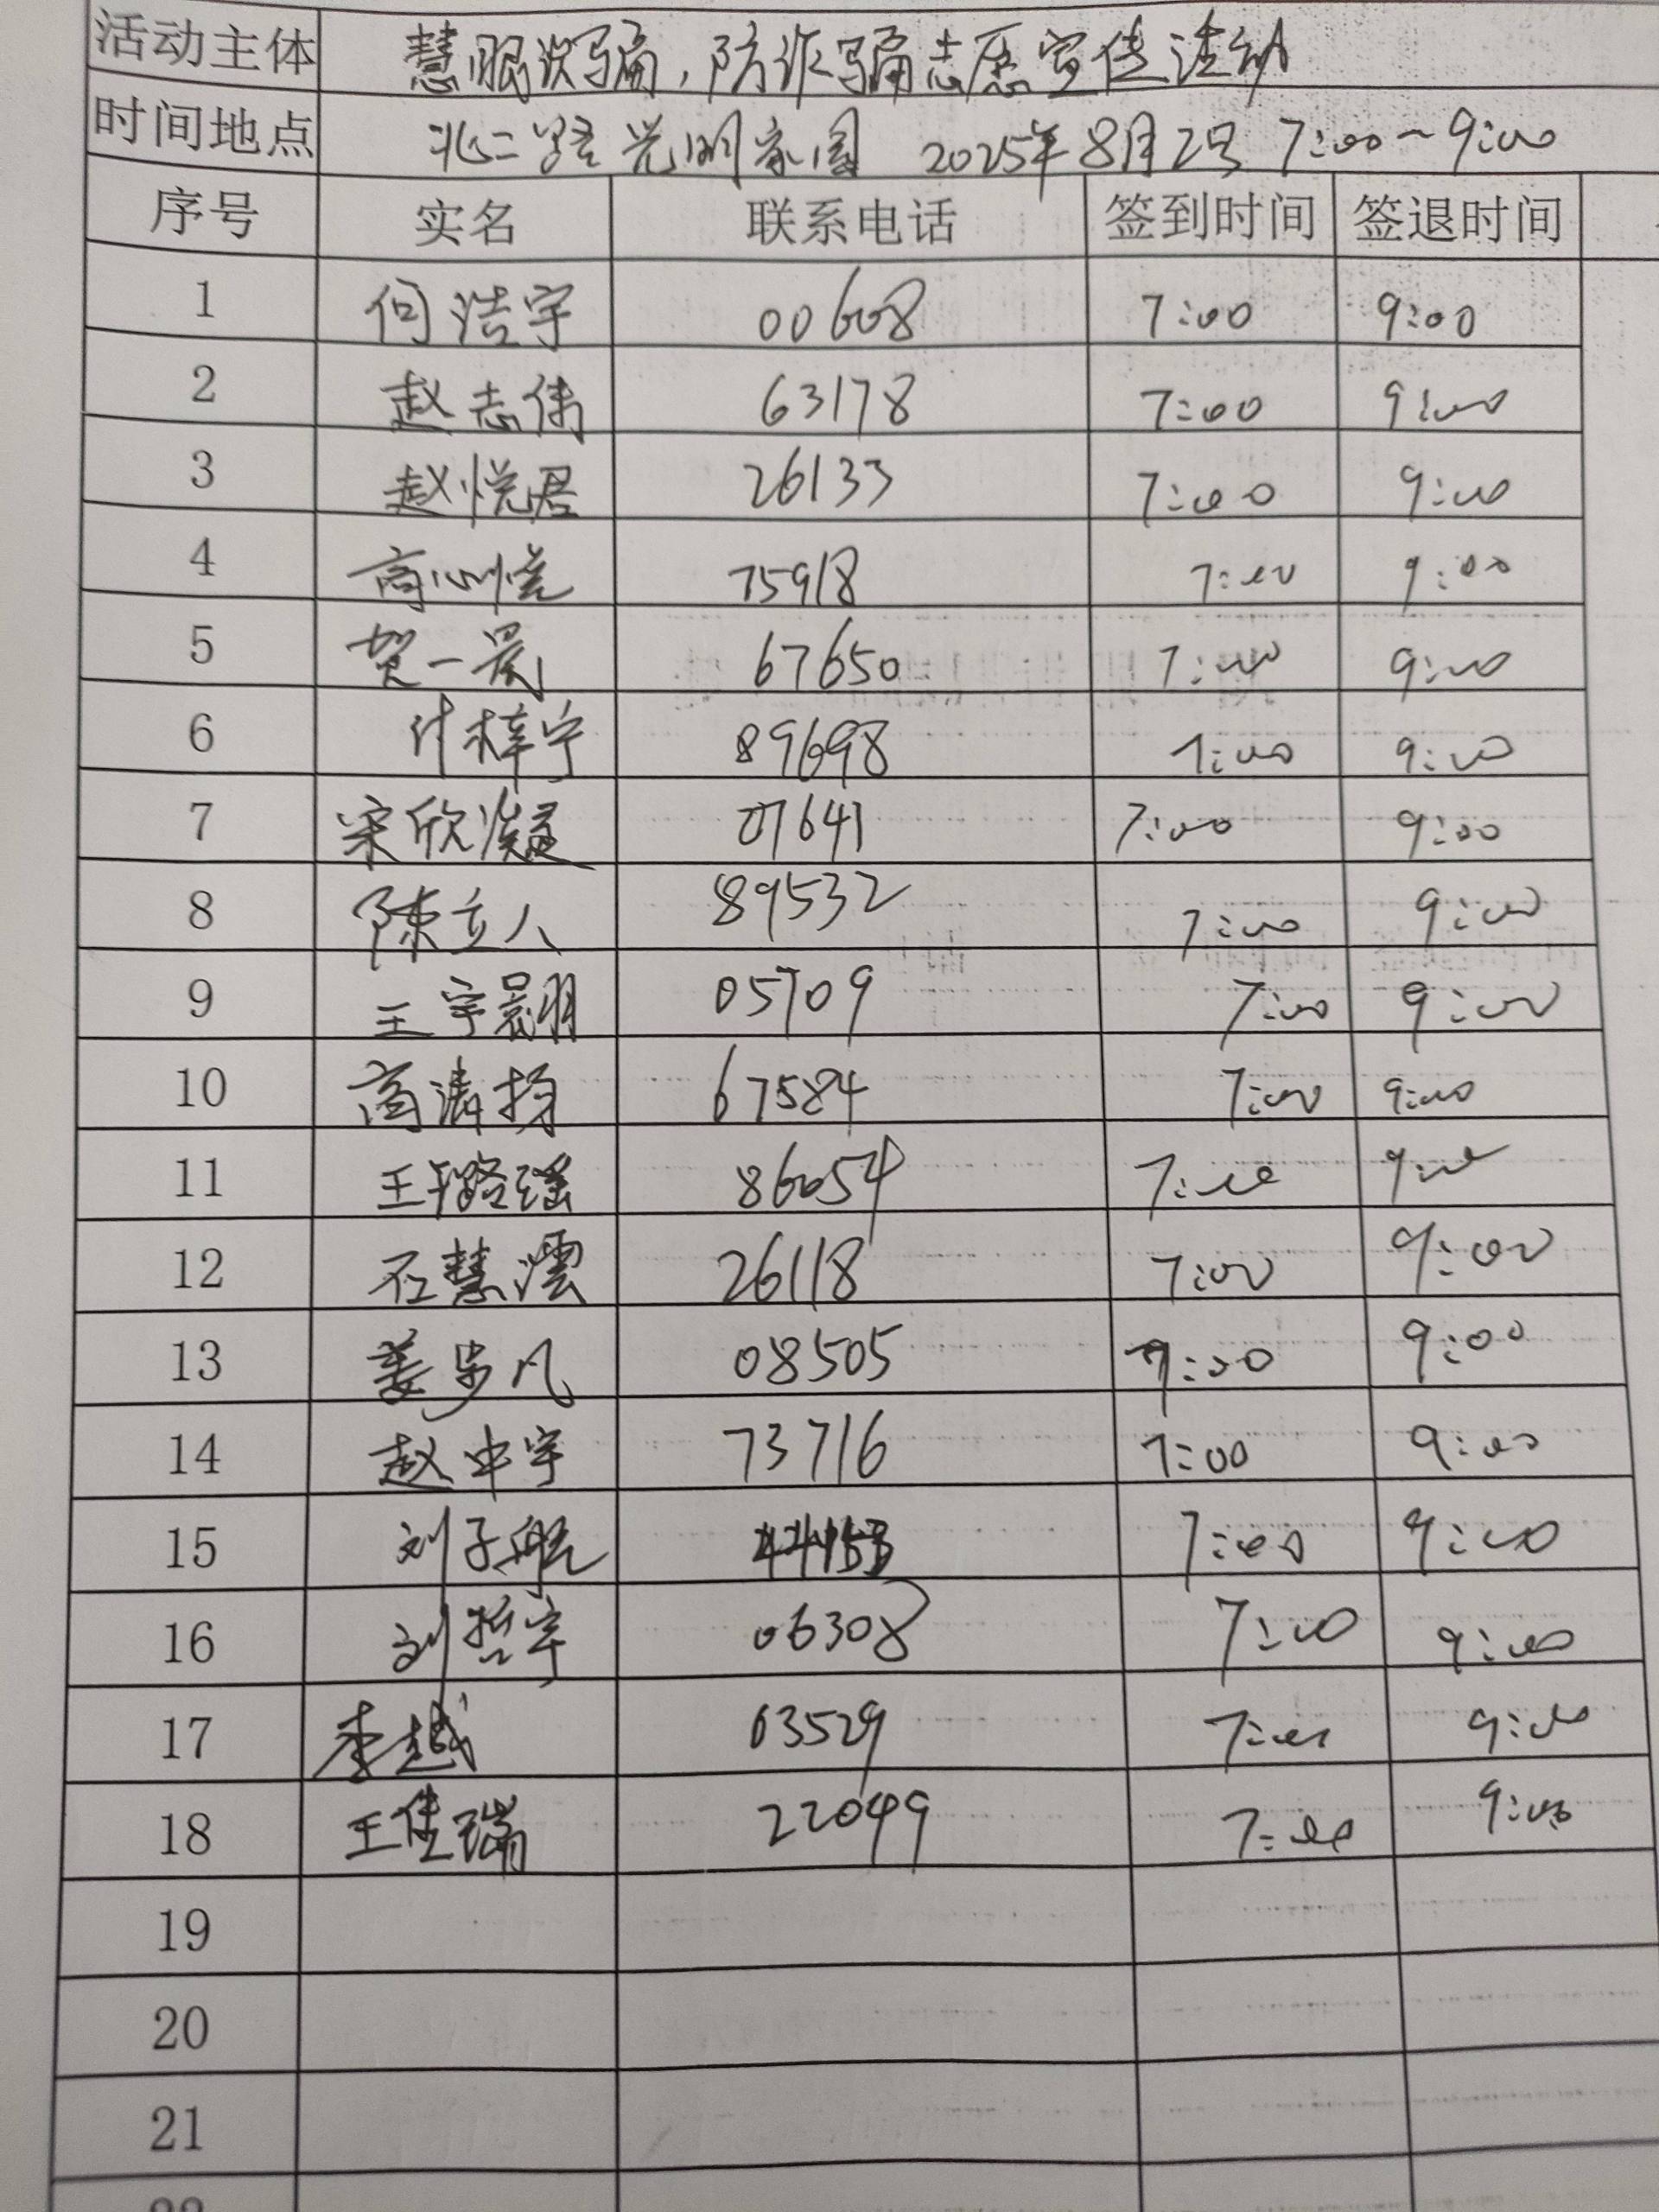 活动主体 慧眼识骗，防诈骗志愿宣传活动
时间地点 北二路光明家园 2025年8月2号 7:00~9:00
序号 实名 联系电话 签到时间 签退时间
1 何浩宇 00608 7:00 9:00
2 赵志伟 63178 7:00 9:00
3 赵悦君 26133 7:00 9:00
4 高心悦 75918 7:00 9:00
5 贺一晨 67650 7:00 9:00
6 付梓宁 89698 7:00 9:00
7 宋欣凝 07641 7:00 9:00
8 陈立人 89532 7:00 9:00
9 王宇翾 05709 7:00 9:00
10 高清扬 67584 7:00 9:00
11 王璐瑶 86054 7:00 9:00
12 石慧澐 26118 7:00 9:00
13 姜步凡 08505 7:00 9:00
14 赵中宇 73716 7:00 9:00
15 刘子 7:00 9:00
16 刘哲宇 06308 7:00 9:00
17 李越 63529 7:00 9:00
18 王佳瑞 22049 7:00 9:00
19
20
21
22